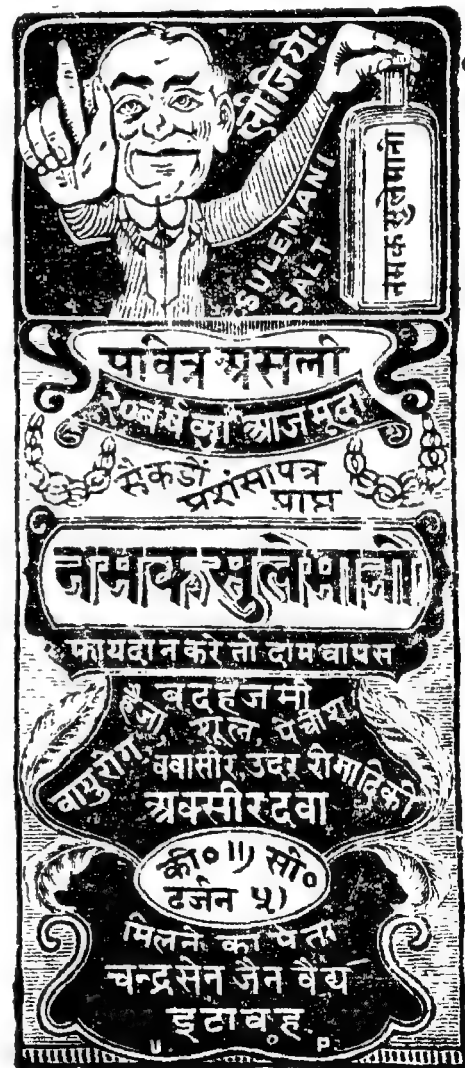 लीजिये
SULEMANI
SALT
नमक सुलेमानी
पवित्र असली
२० वर्ष का आजमूदा
सैकडों प्रशंसापत्र
प्राप्त
नमक सुलेमानी
फायदा न करे तो दाम वापस
बदहजमी
हैजा शूल पेचीश
वायुरोग ववासीर उदर रोगादिकी
अक्सीर दवा
की० ॥) सी०
दर्जन ५)
मिलने का पता
चन्द्रसेन जैन वैद्य
इटावह
U. P.